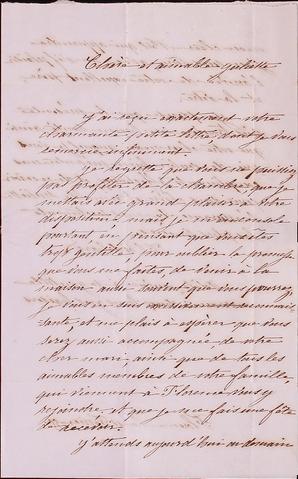 Chère et aimable Juliette
j'ai reçu exactement votre
charmante petite lettre dont je vous
remercie infiniment.
je regrette que vous ne puissiez
pas profiter de la chambre, que je
mettais avec grand plaisir à votre
disposition mais je m'en console
pourtant, en pensant que vous êtes
trop gentille, pour oublier la promesse
que vous me faites, de venir à la
maison aussi souvent que vous pourrez,
je vous en suis reconnais-
sante, et me plais à espérer que vous
serez aussi accompagnée de votre
cher mari, ainsi que de tous les
aimables membres de votre famille,
qui viennent à Florence vous y
rejoindre et que je me fais une fête
de recevoir.
j'attends aujourd'hui ou demain